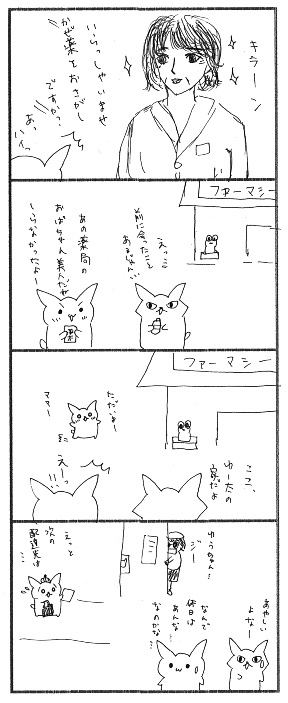 キラーン
いらっしゃいませ
かぜ薬をおさがし
ですかっ?
あっ
いえっ
ファーマシー
えっ…
前に会ったこと
あるじゃん…
あの薬局の
おばちゃん美人だが
いらなかったよー
ファーマシー
ここ、
ゆーたの
家だよ
ただいまー
ママー
えーっ
!!
あやしい
よなー
なんで
休日は
あんな
なのかな…
ゆうちゃん…
ジー
えっと
次の
配達先は
…